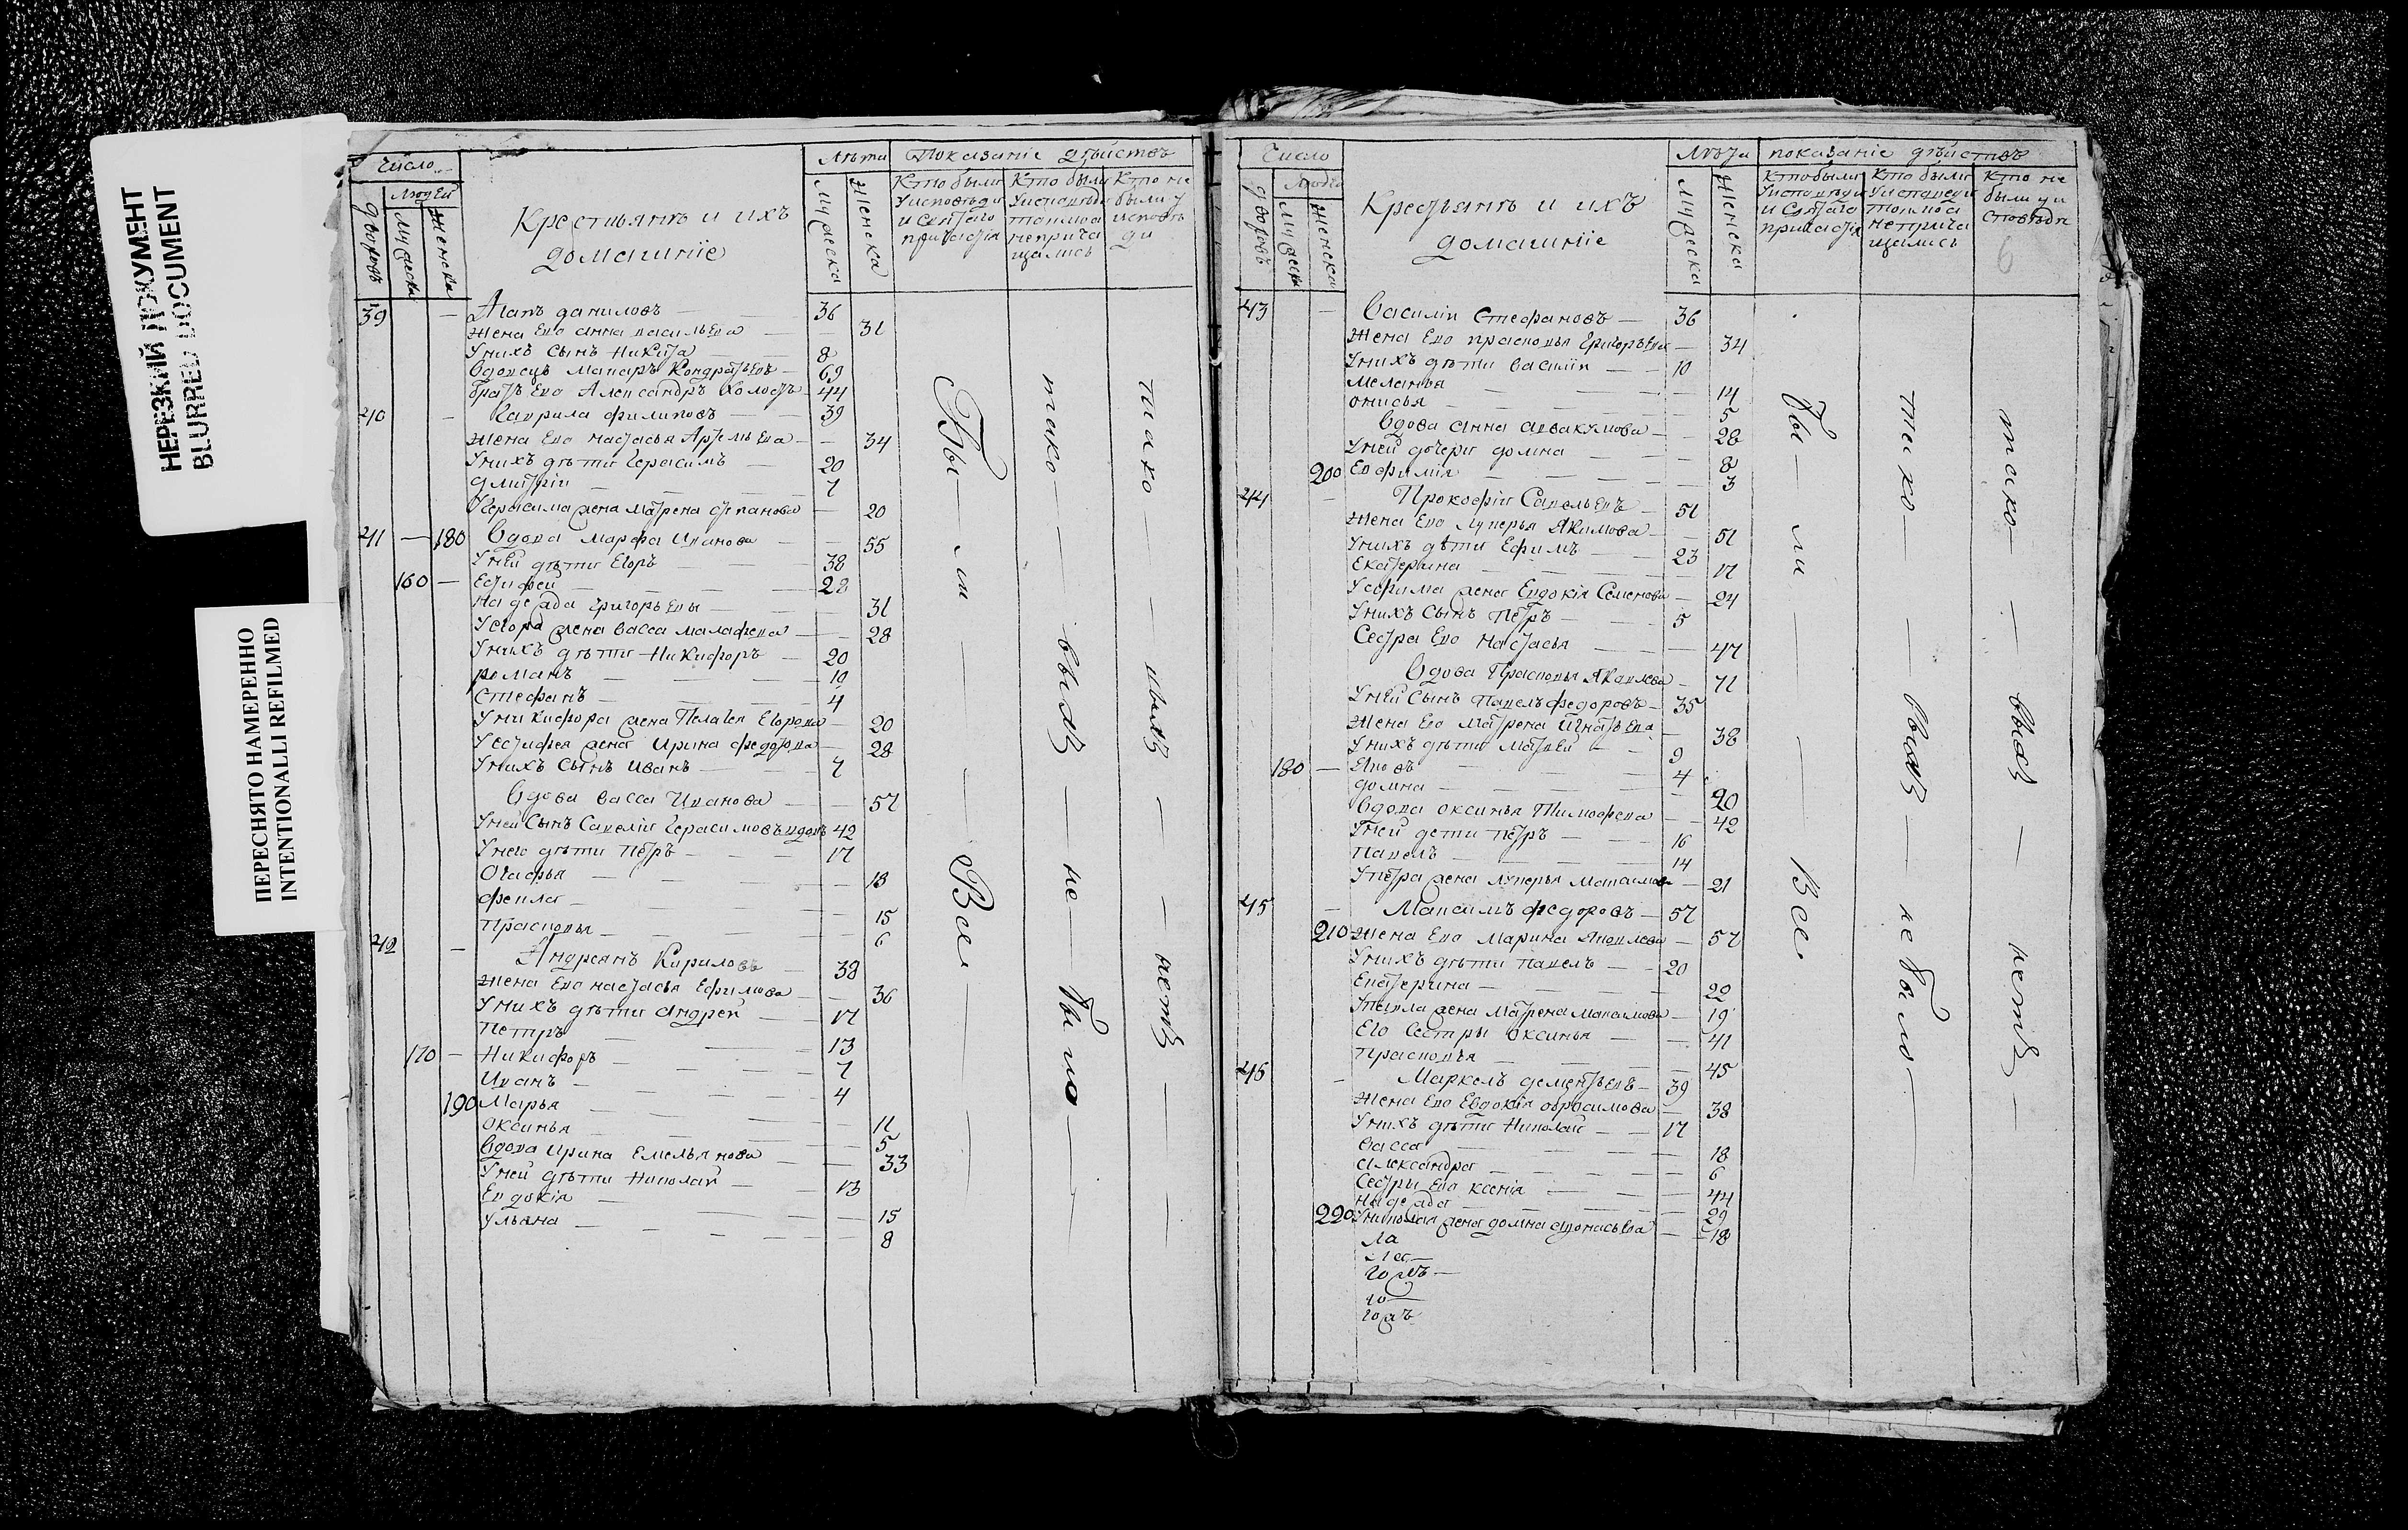 НЕРЕЗКИЙ ДОКУМЕНТ
BLURRED DOCUMENT
ПЕРЕСНЯТО НАМЕРЕННО
INTENTIONALLI REFILMED
Число
Людей
дворовъ
мужеска
женска
Крестьянъ и ихъ
домашніе
Лѣта
мужеска
женска
Показаніе дѣйствъ
Кто были
у исповѣди
и святаго
причастія
Кто были
у исповѣди
токмо а
неприча
щались
Кто не
были у
исповѣ
ди
39 — Агапъ даниловъ — 36
жена Ево анна васильева — 31
У нихъ сынъ никита — 8
вдовецъ Макаръ Кондратьевъ — 69
братъ Ево Александръ холостъ — 44
40 — Гаврила филиповъ — 39
жена Ево настасья Артемьева — 34
У нихъ дѣти Герасимъ — 20
дмитрiи — 7
Герасима жена матрена степанова — 20
41 — 180 вдова марфа Иванова — 55
У ней дѣти Егоръ — 38
160 — Естифей — 28
надежда григорьевы — 31
У егора жена васса малафеева — 28
У нихъ дѣти никифоръ — 20
романъ — 10
Стефанъ — 4
У никифора жена Пелагея Егорова — 20
У естифея жена Ирина федорова — 28
У нихъ сынъ иванъ — 7
вдова васса Иванова — 57
У ней сынъ Савелiи Герасимовъ вдовъ 42
У нево дѣти петръ — 17
Огафья — 18
фекла — 15
прасковья — 6
42 — Андреянъ Кириловъ — 38
жена Ево настасья Ефимова — 36
У нихъ дѣти андрей — 17
петръ — 13
170 — Никифоръ — 7
Иванъ — 4
190 Марья — 11
оксинья — 5
вдова ирина Емельянова — 33
У ней дѣти николай — 13
Евдокiя — 15
ульяна — 8
Бы — ли — Все
тако — выхъ — не — было
тако — выхъ — нетъ
Число
Людей
дворовъ
мужеска
женска
Крестьянъ и ихъ
домашніе
Лѣта
мужеска
женска
показаніе дѣйствъ
Кто были
у исповѣди
и святаго
причастія
Кто были
у исповѣди
токмо а
неприча
щались
Кто не
были у и
сповѣди
6
43 — Василiи Стефановъ — 36
жена Ево прасковья григорьева — 34
У нихъ дѣти василiи — 10
меланья — 14
онисья — 5
вдова анна авакумова — 28
У ней дочери домна — 8
200 Евфимiя — 3
44 — Прокофiи Савельевъ — 51
жена Ево лукерья Якимова — 51
У нихъ дѣти Ефимъ — 23
Екатерина — 17
У ефима жена Евдокiя Семенова — 24
У нихъ сынъ петръ — 5
Сестра Ево настасья — 47
вдова Прасковья Яковлева — 71
У ней сынъ павелъ федоровъ — 35
жена Ево матрена Игнатьева — 38
У нихъ дѣти матвей — 9
180 — Яковъ — 4
домна — 20
вдова оксинья Тимофеева — 42
У ней дети петръ — 16
павелъ — 14
У петра жена лукерья максимова — 21
45 — Максимъ федоровъ — 57
210 жена Ево марина Яковлева — 57
У нихъ дѣти павелъ — 20
Екатерина — 22
У павла жена матрена максимова — 19
Его сестры оксинья — 41
прасковья — 45
46 — Маркелъ дементьевъ — 39
жена Ево Евдокiя абросимова — 38
У нихъ дѣти николай — 17
васса — 18
александра — 6
Сестры Ево ксенiя — 44
надежда — 29
220 У николая жена домна афонасьева — 18
Бы — ли — Все
тако — выхъ — не было
тако — выхъ — нетъ